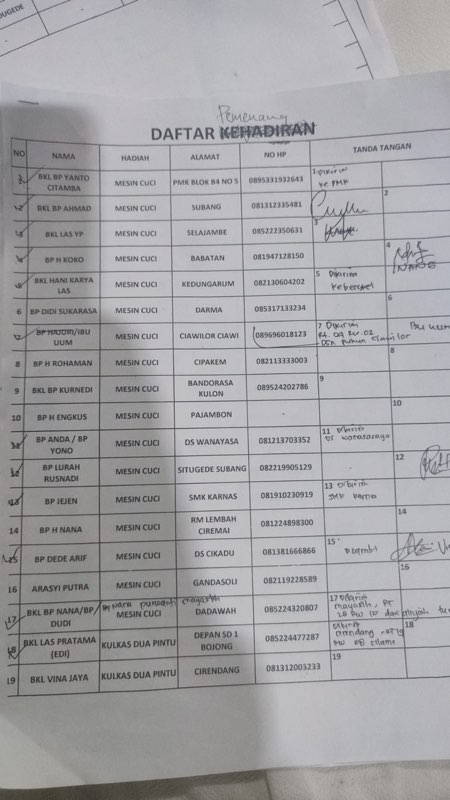 UGEDE
Pemenang
DAFTAR KEHADIRAN
NO NAMA HADIAH ALAMAT NO HP TANDA TANGAN
1 BKL BP YANTO CITAMBA MESIN CUCI PMK BLOK B4 NO 5 0895331932643 1 Dikirim ke PMK
2 BKL BP AHMAD MESIN CUCI SUBANG 081312335481 2
3 BKL LAS YP MESIN CUCI SELAJAMBE 085222350631 3
4 BP H KOKO MESIN CUCI BABATAN 081947128150 4
5 BKL HANI KARYA LAS MESIN CUCI KEDUNGARUM 082130604202 5 Dikirim ke bengkel
6 BP DIDI SUKARASA MESIN CUCI DARMA 085317133234 6
7 BP HAJURI/IBU UUM MESIN CUCI CIAWILOR CIAWI 089696018123 7 Dikirim Rt. 04 Rw. 02 Dsn Ciawilor
8 BP H ROHAMAN MESIN CUCI CIPAKEM 082113333003 8
9 BKL BP KURNEDI MESIN CUCI BANDORASA KULON 089524202786 9
10 BP H ENGKUS MESIN CUCI PAJAMBON - 10
11 BP ANDA / BP YONO MESIN CUCI DS WANAYASA 081213703352 11 Dikirim
12 BP LURAH RUSNADI MESIN CUCI SITUGEDE SUBANG 082219905129 12
13 BP JEJEN MESIN CUCI SMK KARNAS 081910230919 13 Dikirim SMK Karnas
14 BP H NANA MESIN CUCI RM LEMBAH CIREMAI 081224898300 14
15 BP DEDE ARIF MESIN CUCI DS CIKADU 081381666866 15 Diambil
16 ARASYI PUTRA MESIN CUCI GANDASOLI 082119228589 16
17 BKL BP NANA/BP/ DUDI MESIN CUCI DADAWAH 085224320807 17 Dikirim
18 BKL LAS PRATAMA (EDI) KULKAS DUA PINTU DEPAN SD 1 BOJONG 085224477287 Dikirim 18
19 BKL VINA JAYA KULKAS DUA PINTU CIRENDANG 081312003233 19